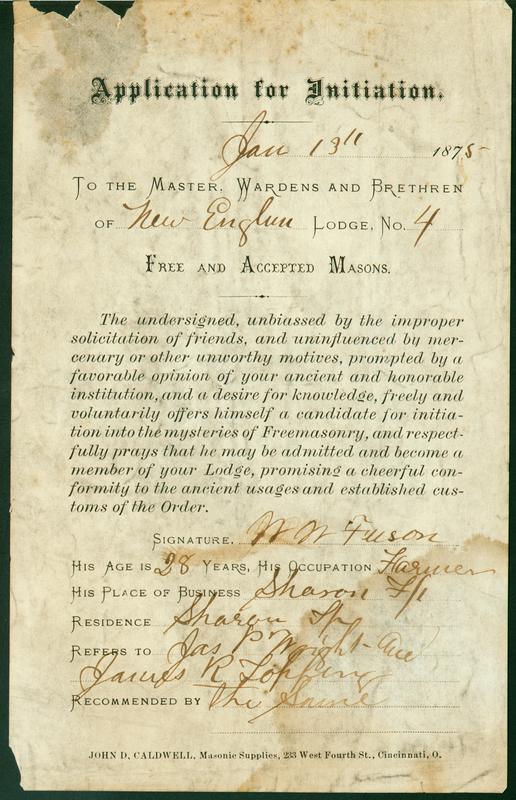 Application for Initiation.
Jan 13" 1875
TO THE MASTER, WARDENS AND BRETHREN
OF New Englun LODGE, NO. 4
FREE AND ACCEPTED MASONS.
The undersigned, unbiassed by the improper
solicitation of friends, and uninfluenced by mer-
cenary or other unworthy motives, prompted by a
favorable opinion of your ancient and honorable
institution, and a desire for knowledge, freely and
voluntarily offers himself a candidate for initia-
tion into the mysteries of Freemasonry, and respect-
fully prays that he may be admitted and become a
member of your Lodge, promising a cheerful con-
formity to the ancient usages and established cus-
toms of the Order.
SIGNATURE, W W Fuson
HIS AGE IS 28 YEARS, HIS OCCUPATION Farmer
HIS PLACE OF BUSINESS Sharon
RESIDENCE Sharon Tp
REFERS TO Jas P Wright
James R Topping
RECOMMENDED BY the Same
JOHN D. CALDWELL, Masonic Supplies, 233 West Fourth St., Cincinnati, O.